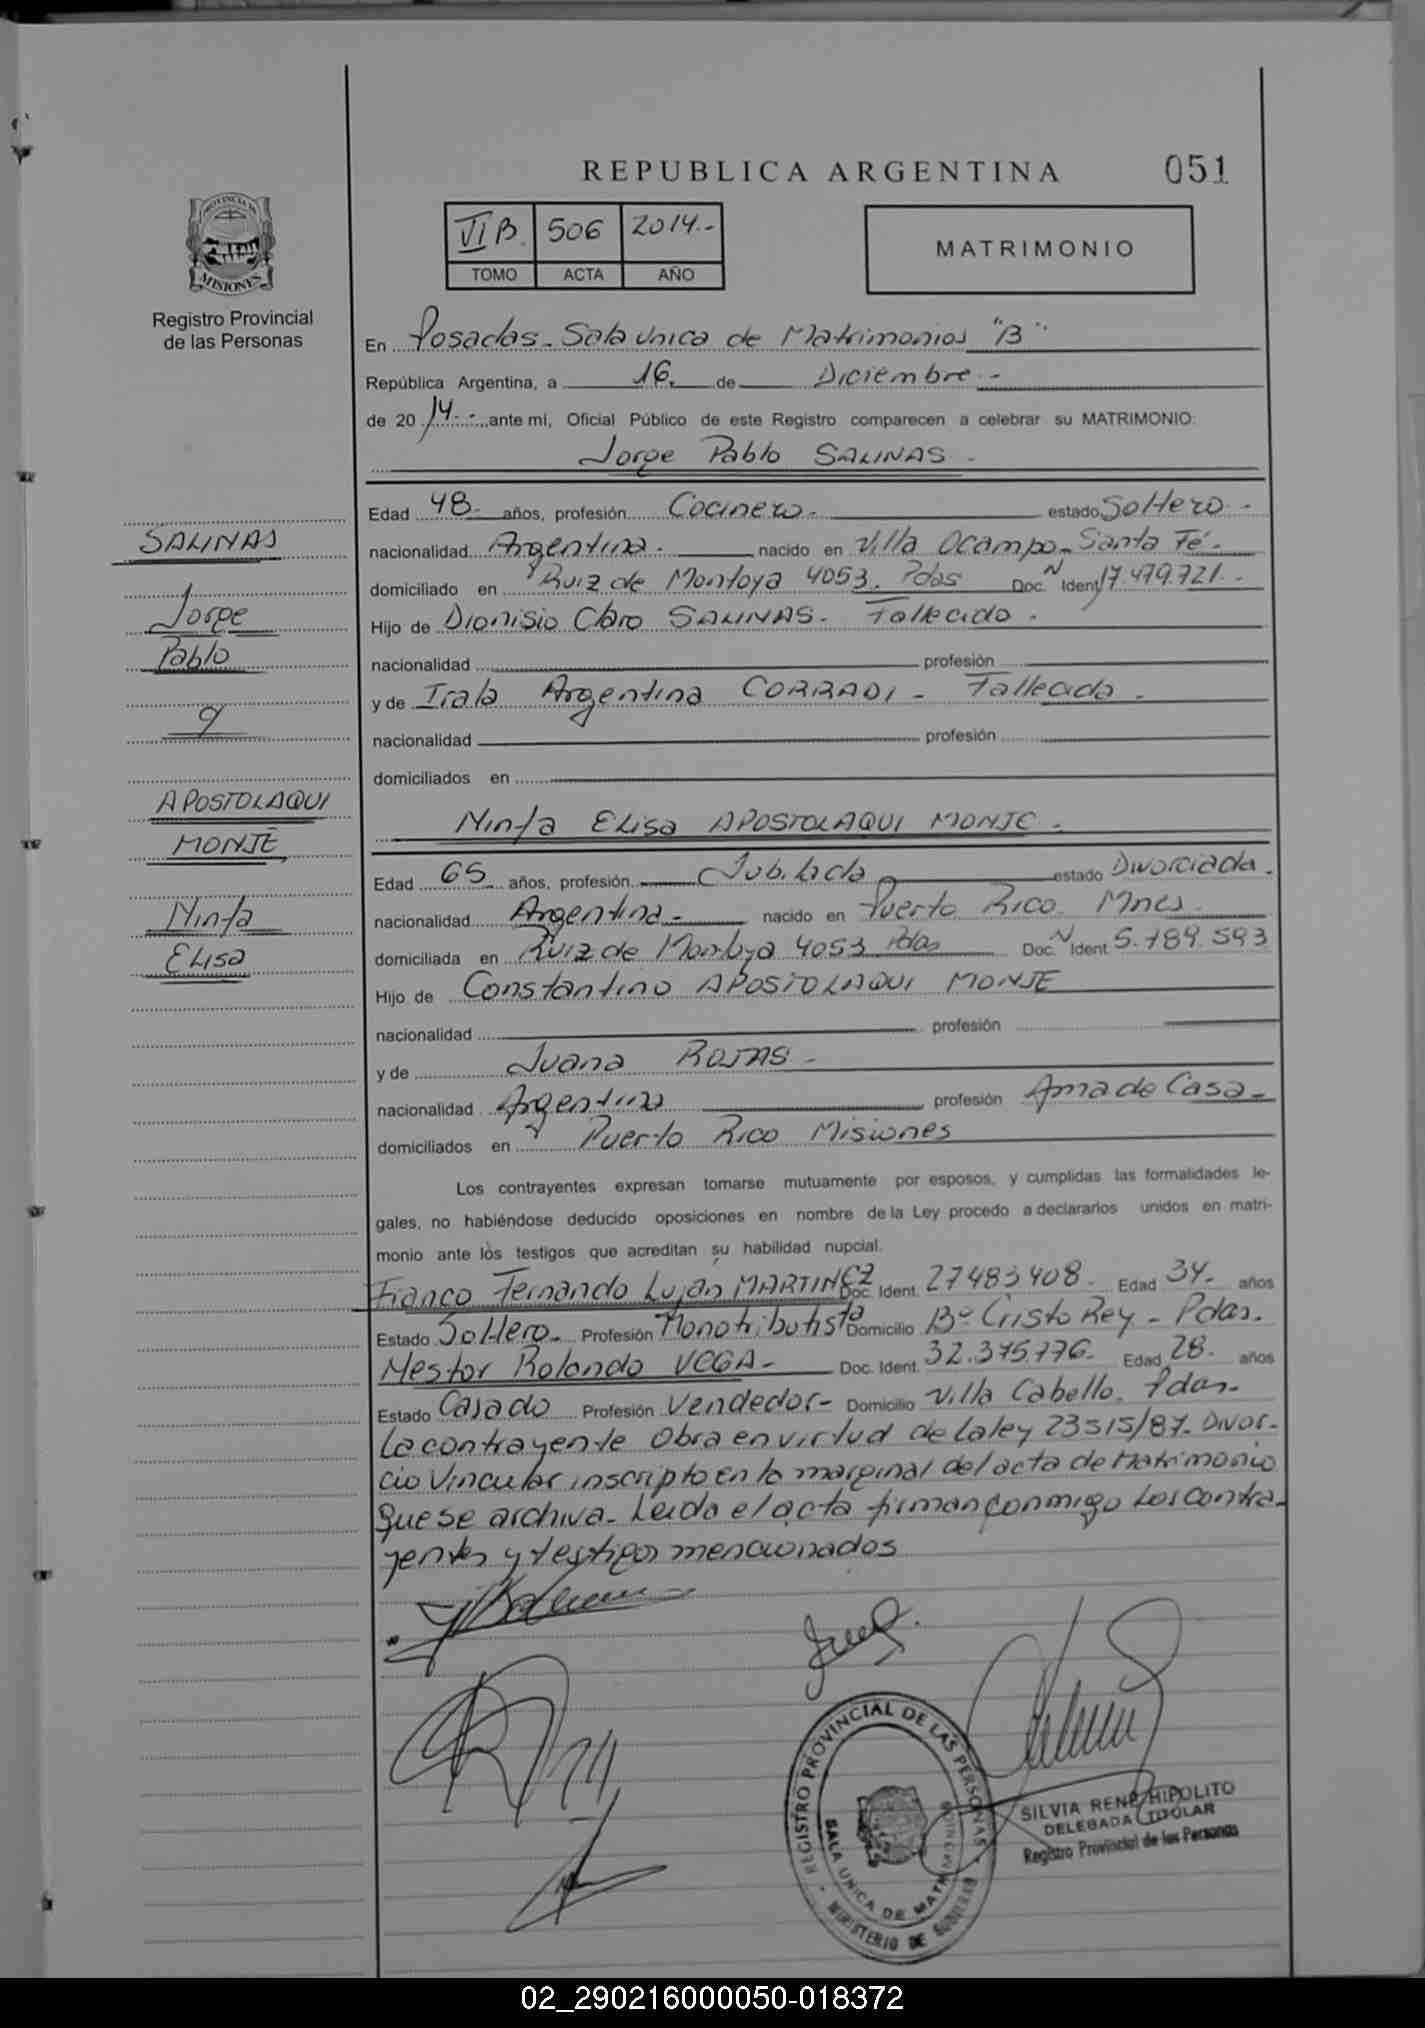 REPUBLICA ARGENTINA
051
PROVINCIA DE
MISIONES
Registro Provincial
de las Personas
VI B. 506 2014.-
TOMO ACTA AÑO
MATRIMONIO
En Posadas - Sala Unica de Matrimonios "B"
República Argentina, a 16 de Diciembre -
de 20 14 - ante mí, Oficial Público de este Registro comparecen a celebrar su MATRIMONIO:
Jorge Pablo SALINAS -
Edad 48 años, profesión Cocinero - estado Soltero -
nacionalidad Argentina - nacido en Villa Ocampo - Santa Fé -
domiciliado en Ruiz de Montoya 4053 Pdas Doc. N Ident 17.479.721 -
Hijo de Dionisio Claro SALINAS - Fallecido -
nacionalidad profesión
y de Itala Argentina CORRADI - Fallecida -
nacionalidad profesión
domiciliados en
Ninfa Elisa APOSTOLAQUI MONJE -
Edad 65 años, profesión Jubilada estado Divorciada -
nacionalidad Argentina - nacido en Puerto Rico Mnes
domiciliada en Ruiz de Montoya 4053 Pdas Doc. N Ident 5.789.593
Hijo de Constantino APOSTOLAQUI MONJE
nacionalidad profesión
y de Juana ROJAS -
nacionalidad Argentina profesión Ama de Casa -
domiciliados en Puerto Rico Misiones
Los contrayentes expresan tomarse mutuamente por esposos, y cumplidas las formalidades le-
gales, no habiéndose deducido oposiciones en nombre de la Ley procedo a declararlos unidos en matri-
monio ante los testigos que acreditan su habilidad nupcial.
Franco Fernando Luján MARTINEZ Doc. Ident. 27483408 - Edad 34 - años
Estado Soltero - Profesión Monotributista Domicilio Bº Cristo Rey - Pdas.
Nestor Rolando VEGA - Doc. Ident. 32.375.776 - Edad 28 - años
Estado Casado Profesión Vendedor - Domicilio Villa Cabello. Pdas -
La contrayente obra en virtud de la ley 23515/87 - Divor-
cio Vincular inscripto en la marginal del acta de Matrimonio
que se archiva - Leida el acta firman conmigo los contra-
yentes y testigos mencionados
SALINAS
Jorge
Pablo
y
APOSTOLAQUI
MONJE
Ninfa
Elisa
REGISTRO PROVINCIAL DE LAS PERSONAS
SALA UNICA DE MATRIMONIOS
MINISTERIO DE GOBIERNO
SILVIA RENE HIPOLITO
DELEGADA TITULAR
Registro Provincial de las Personas
02_290216000050-018372